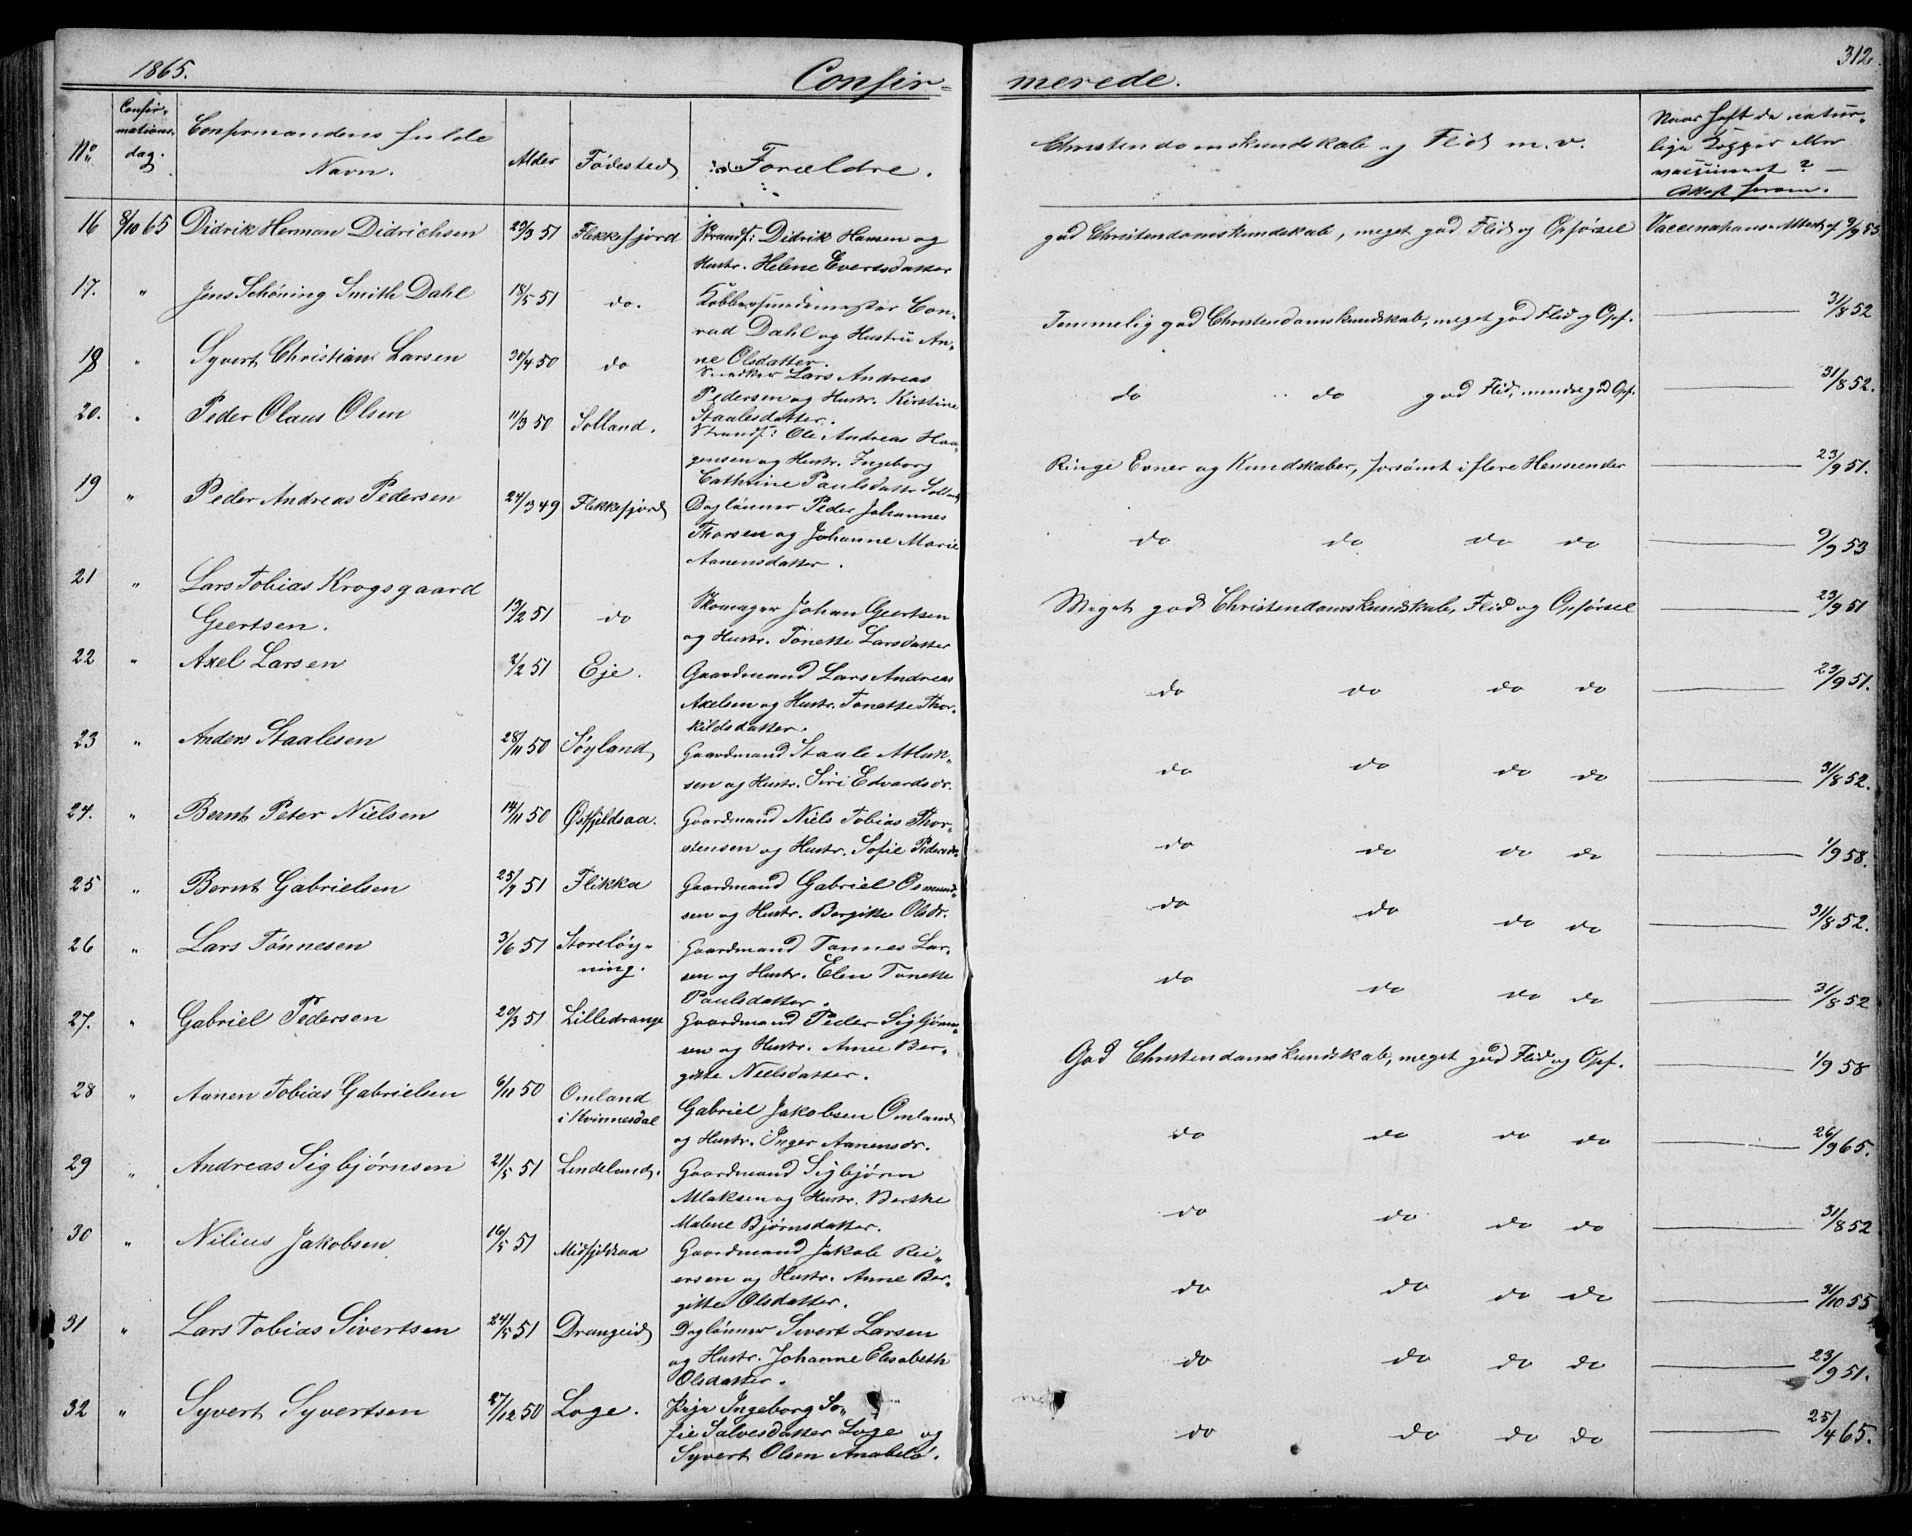 1865.
Confir-
merede.
312.
No
Confir-
mations-
dag.
Confirmandens fulde
Navn.
Alder
Fødested
Forældre.
Christendomskundskab og Flid m. v.
Naar haft de natur-
lige Kopper eller
vaccineret?
Attest herom.
16 8/10 65 Didrik Herman Didrichsen 29/3 51 Flekkefjord Strandf: Didrik Hansen og
Hustr. Helene Evertsdatter
god Christendomskundskab, meget god Flid og Opførsel
Vaccinations Attest af 9/9 53
17. " Jens Schøning Smith Dahl 18/5 51 do. Kobbersmedemester Con-
rad Dahl og Hustru An-
ne Olsdatter.
Temmelig god Christendomskundskab, meget god Flid og Opf. 31/8 52
18 " Syvert Christian Larsen 30/4 50 do Lars Andreas
Pedersen og Hustr. Kirstine
Staalesdatter.
do do god Flid, mindre god Opf. 31/8 52.
20. " Peder Olaus Olsen 11/3 50 Solland. Strandf: Ole Andreas Haa-
gensen og Hustr. Ingeborg
Cathrine Paulsdatter Solland
Ringe Evner og Kundskaber, forsømt i flere Henseender 23/9 51.
19 " Peder Andreas Pedersen 24/3 49 Flekkefjord Daglønner Peder Johannes
Thorsen og Johanne Marie
Aanensdatter.
do do do do 9/9 53
21 " Lars Tobias Krogsgaard
Geertsen. 13/2 51 do Skomager Johan Geertsen
og Hustr. Tonette Larsdatter
Meget god Christendomskundskab, Flid og Opførsel 23/9 51
22 " Axel Larsen 2/2 51 Eje. Gaardmand Lars Andreas
Axelsen og Hustr. Tonette Thor-
kildsdatter.
do do do do 23/9 51.
23 " Anders Staalesen 28/11 50 Søyland Gaardmand Staale Atlak-
sen og Hustr. Siri Edvardsdr.
do do do do 31/8 52.
24. " Bernt Peter Nielsen 14/11 50 Østfjeldsaa. Gaardmand Niels Tobias Thor-
stensen og Hustr. Sofie Pedersdr.
do do do do 1/9 58.
25 " Bernt Gabrielsen 25/9 51 Flikka Gaardmand Gabriel Osmund-
sen og Hustr. Bergitte Olsdr.
do do do do 31/8 52.
26 " Lars Tønnesen 3/6 51 Storeløg-
ning. Gaardmand Tønnes Lar-
sen og Hustr. Elen Tonette
Paulsdatter.
do do do do 31/8 52
27. " Gabriel Pedersen 20/3 51 Lilledrange Gaardmand Peder Sigbjørn-
sen og Hustr. Anne Ber-
gitte Nielsdatter.
God Christendomskundskab, meget god Flid og Opf. 1/9 58
28 " Aanen Tobias Gabrielsen 6/11 50 Omland
i Kvinnesdal Gabriel Jakobsen Omland
og Hustr. Inger Aanensdr.
do do do do 26/9 65.
29 " Andreas Sigbjørnsen 21/5 51 Lindeland. Gaardmand Sigbjørn
Atlaksen og Hustr. Berthe
Malene Bjørnsdatter.
do do do do 31/8 52
30 " Nilius Jakobsen 16/5 51 Midtfjeldsaa Gaardmand Jakob Rei-
ersen og Hustr. Anne Ber-
gitte Olsdatter.
do do do do 31/10 55
31 " Lars Tobias Sivertsen 24/5 51 Drangeid Daglønner Sivert Larsen
og Hustr. Johanne Elisabeth
Olsdatter.
do do do do 23/9 51.
32 " Syvert Syvertsen 27/12 50 Loge. Pige Ingeborg So-
fie Salvesdatter Loge og
Syvert Olsen Anabelø.
do do do do 25/4 65.